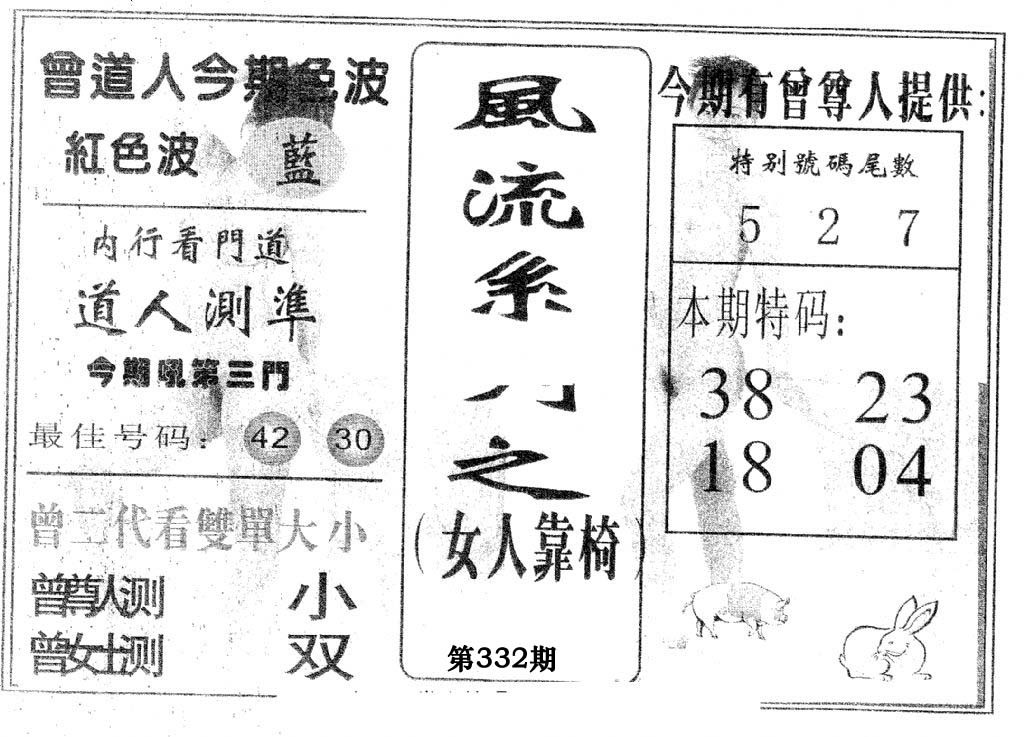 曾道人今期色波
紅色波 藍
内行看門道
道人測準
今期吼第三門
最佳号码： 42 30
曾二代看雙單大小
曾尊人测 小
曾女士测 双
風
流
系
之
（女人靠椅）
第332期
今期有曾尊人提供：
特别號碼尾數
5 2 7
本期特码：
38 23
18 04